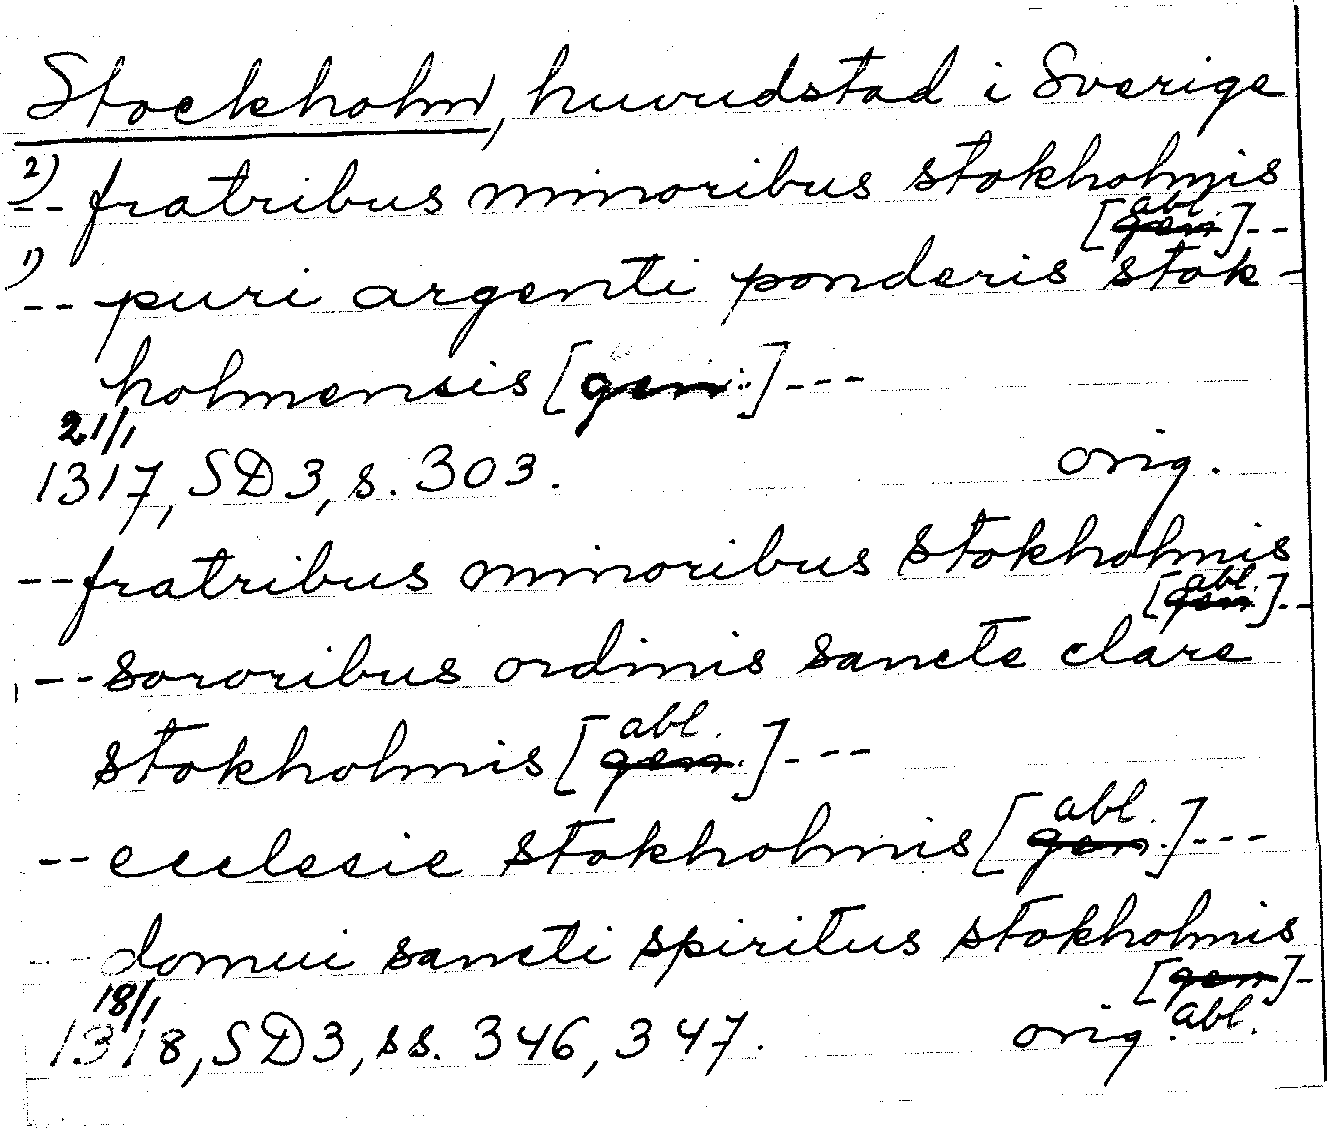 Stockholm, huvudstad i Sverige
2) -- fratribus minoribus stokholmis
[abl.] --
1) -- puri argenti ponderis stok-
holmensis [gen.] ---
21/1
1317, SD 3, s. 303. orig.
-- fratribus minoribus stokholmis
[abl.] --
-- sororibus ordinis sancte clare
stokholmis [abl.] ---
-- ecclesie stokholmis [abl.] ---
-- domui sancti spiritus stokholmis
[gen] -
18/1
1318, SD 3, ss. 346, 347. orig. abl.